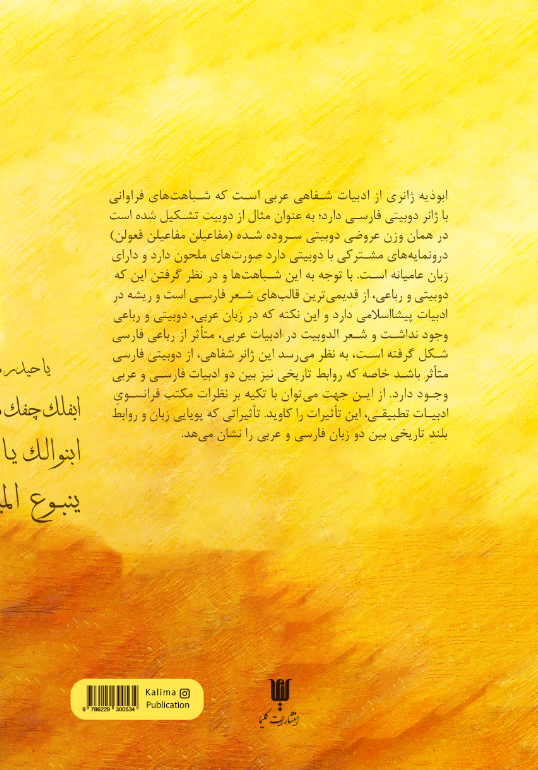 ابوذیه ژانری از ادبیات شفاهی عربی است که شباهت‌های فراوانی
با ژانر دوبیتی فارسی دارد؛ به عنوان مثال از دوبیت تشکیل شده است
در همان وزن عروضی دوبیتی سروده شده (مفاعیلن مفاعیلن فعولن)
درونمایه‌های مشترکی با دوبیتی دارد صورت‌های ملحون دارد و دارای
زبان عامیانه است. با توجه به این شباهت‌ها و در نظر گرفتن این که
دوبیتی و رباعی، از قدیمی‌ترین قالب‌های شعر فارسی است و ریشه در
ادبیات پیشااسلامی دارد و این نکته که در زبان عربی، دوبیتی و رباعی
وجود نداشت و شعر الدوبیت در ادبیات عربی، متأثر از رباعی فارسی
شکل گرفته است، به نظر می‌رسد این ژانر شفاهی، از دوبیتی فارسی
متأثر باشد خاصه که روابط تاریخی نیز بین دو ادبیات فارسی و عربی
وجود دارد. از این جهت می‌توان با تکیه بر نظرات مکتب فرانسویِ
ادبیات تطبیقی، این تأثیرات را کاوید. تأثیراتی که پویایی زبان و روابط
بلندِ تاریخی بین دو زبان فارسی و عربی را نشان می‌هد.
یا حیدر
ابفلك چفك
ابنوالك یا
ینبوع
Kalima
Publication
9 786229 300534
انتشارات کلیما